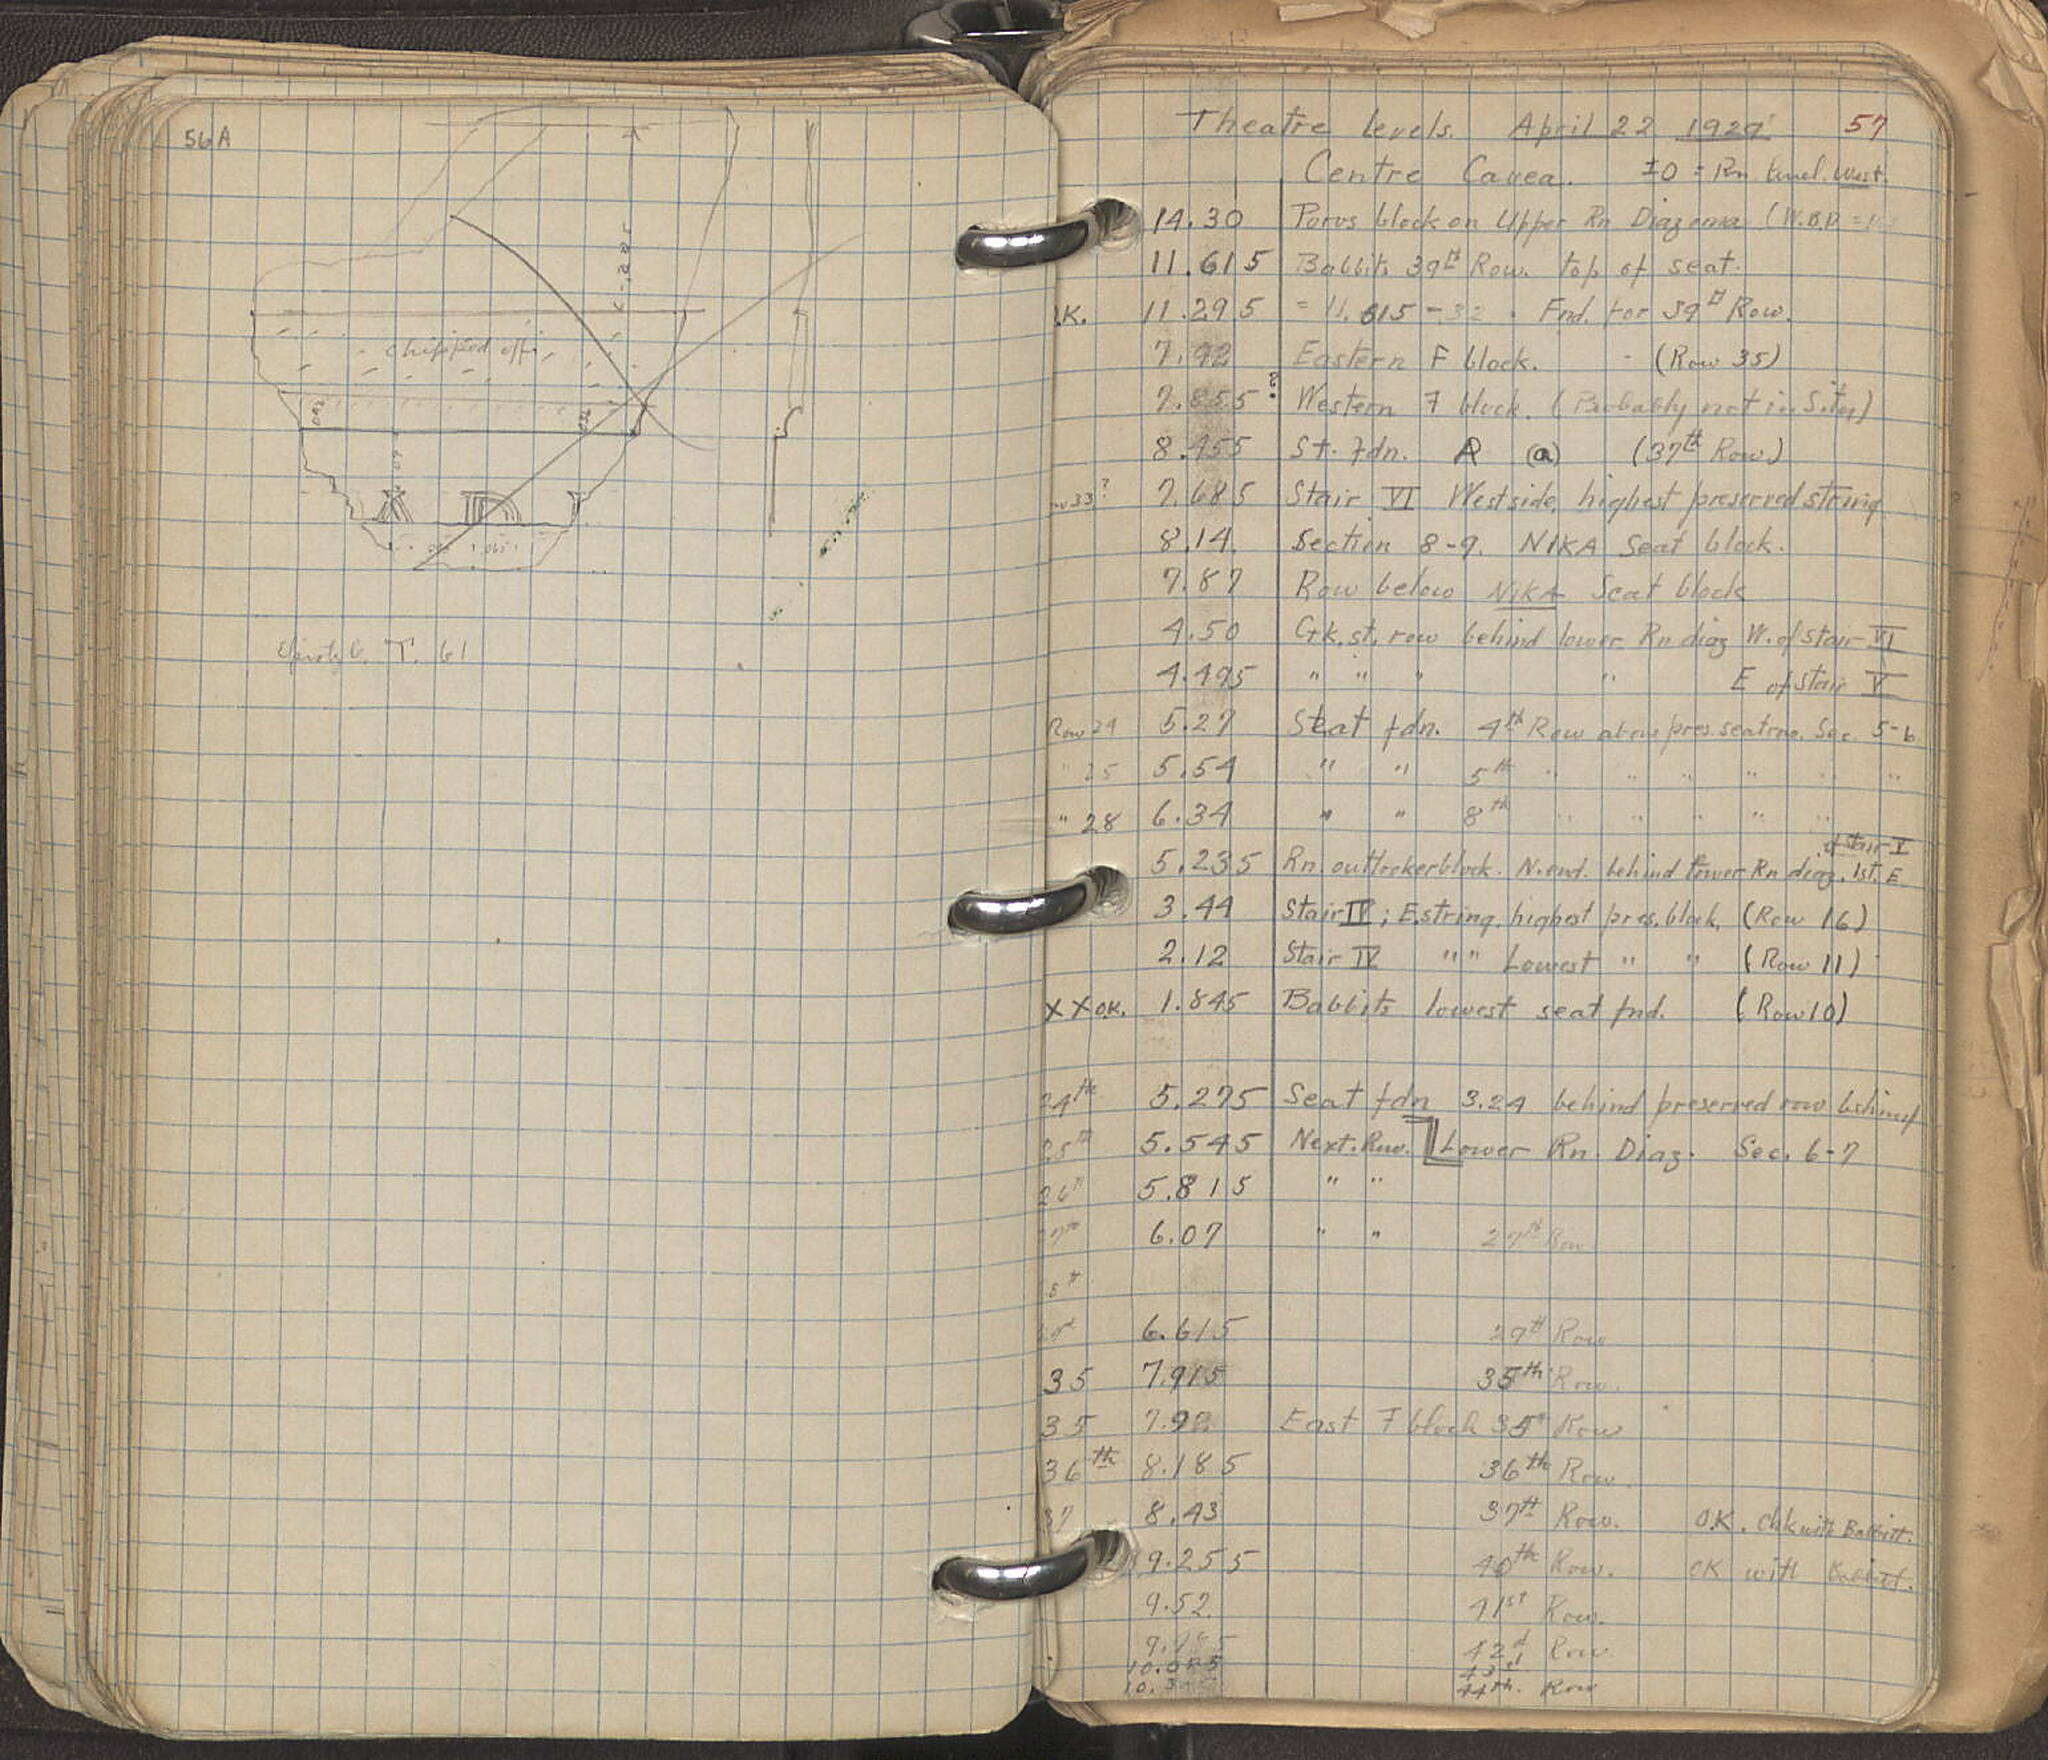 56A
chipped off
T. 61
57
Theatre levels. April 22 1929
Centre Cavea. ±0 = Rn. West.
14.30 Poros block on Upper Rn Diazoma (W.B.D. =
11.615 Babbits 39th Row. top of seat.
O.K. 11.295 = 11.615 - 32 . Fnd. for 39th Row.
7.92 Eastern F block. - (Row 35)
7.855? Western F block. (Probably not in Situ)
8.455 St. fdn. A (a) (37th Row)
33? 7.685 Stair VI West side, highest preserved string
8.14. Section 8-9. NIKA Seat block.
7.87 Row below NIKA Seat block
4.50 Gk. st. row behind lower Rn diaz W. of stair VI
4.495 " " " " E of stair V
Row 24 5.27 Seat fdn. 4th Row above pres. seat row. Sec. 5-6
" 25 5.54 " " 5th " " " " " "
" 28 6.34 " " 8th " " " " "
of stair V
5.235 Rn. block. N. end. behind lower Rn diaz. 1st. E
3.44 Stair IV; E string. highest pres. block, (Row 16)
2.12 Stair IV " " Lowest " " (Row 11)
X X O.K. 1.845 Babbits lowest seat fnd. (Row 10)
24th 5.275 Seat fdn 3.24 behind preserved row behind
25th 5.545 Next. Row. Lower Rn. Diaz. Sec. 6-7
26th 5.815 " "
27th 6.07 " " 27th Row
6.615 29th Row
35 7.915 35th Row.
35 7.92 East F block 35th Row
36th 8.185 36th Row.
37 8.43 37th Row. O.K. Chk with Babbitt.
9.255 40th Row. OK with Babbitt.
9.52. 41st Row.
42d Row
43d
44th. Row